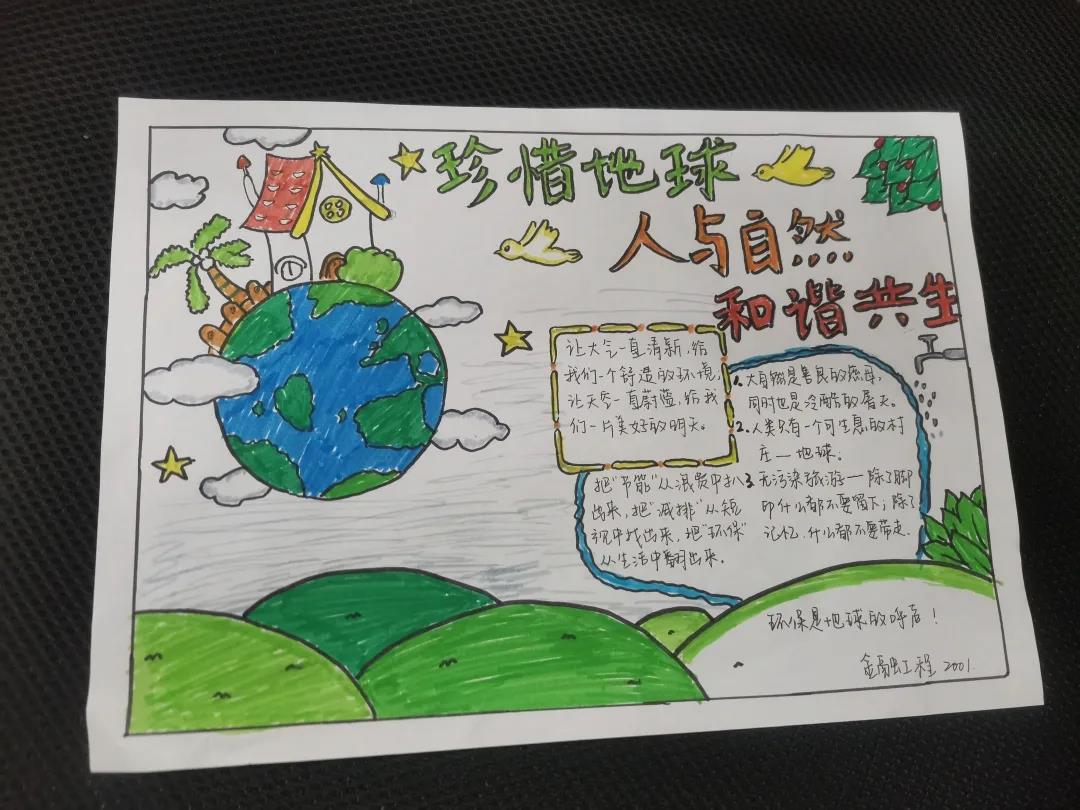 珍惜地球
人与自然
和谐共生
让大气一直清新,给
我们一个舒适的环境,
让天空一直蔚蓝,给我
们一片美好的明天。
1.大自然是善良的慈母,
同时也是冷酷的屠夫。
2.人类只有一个可生息的村
庄—地球。
3.无污染旅游——除了脚
印什么都不要留下;除了
记忆,什么都不要带走.
把"节能"从混货中扒
出来,把"减排"从短
讯中找出来,把"环保"
从生活中翻出来。
环保是地球的呼声!
金融工程 2001.